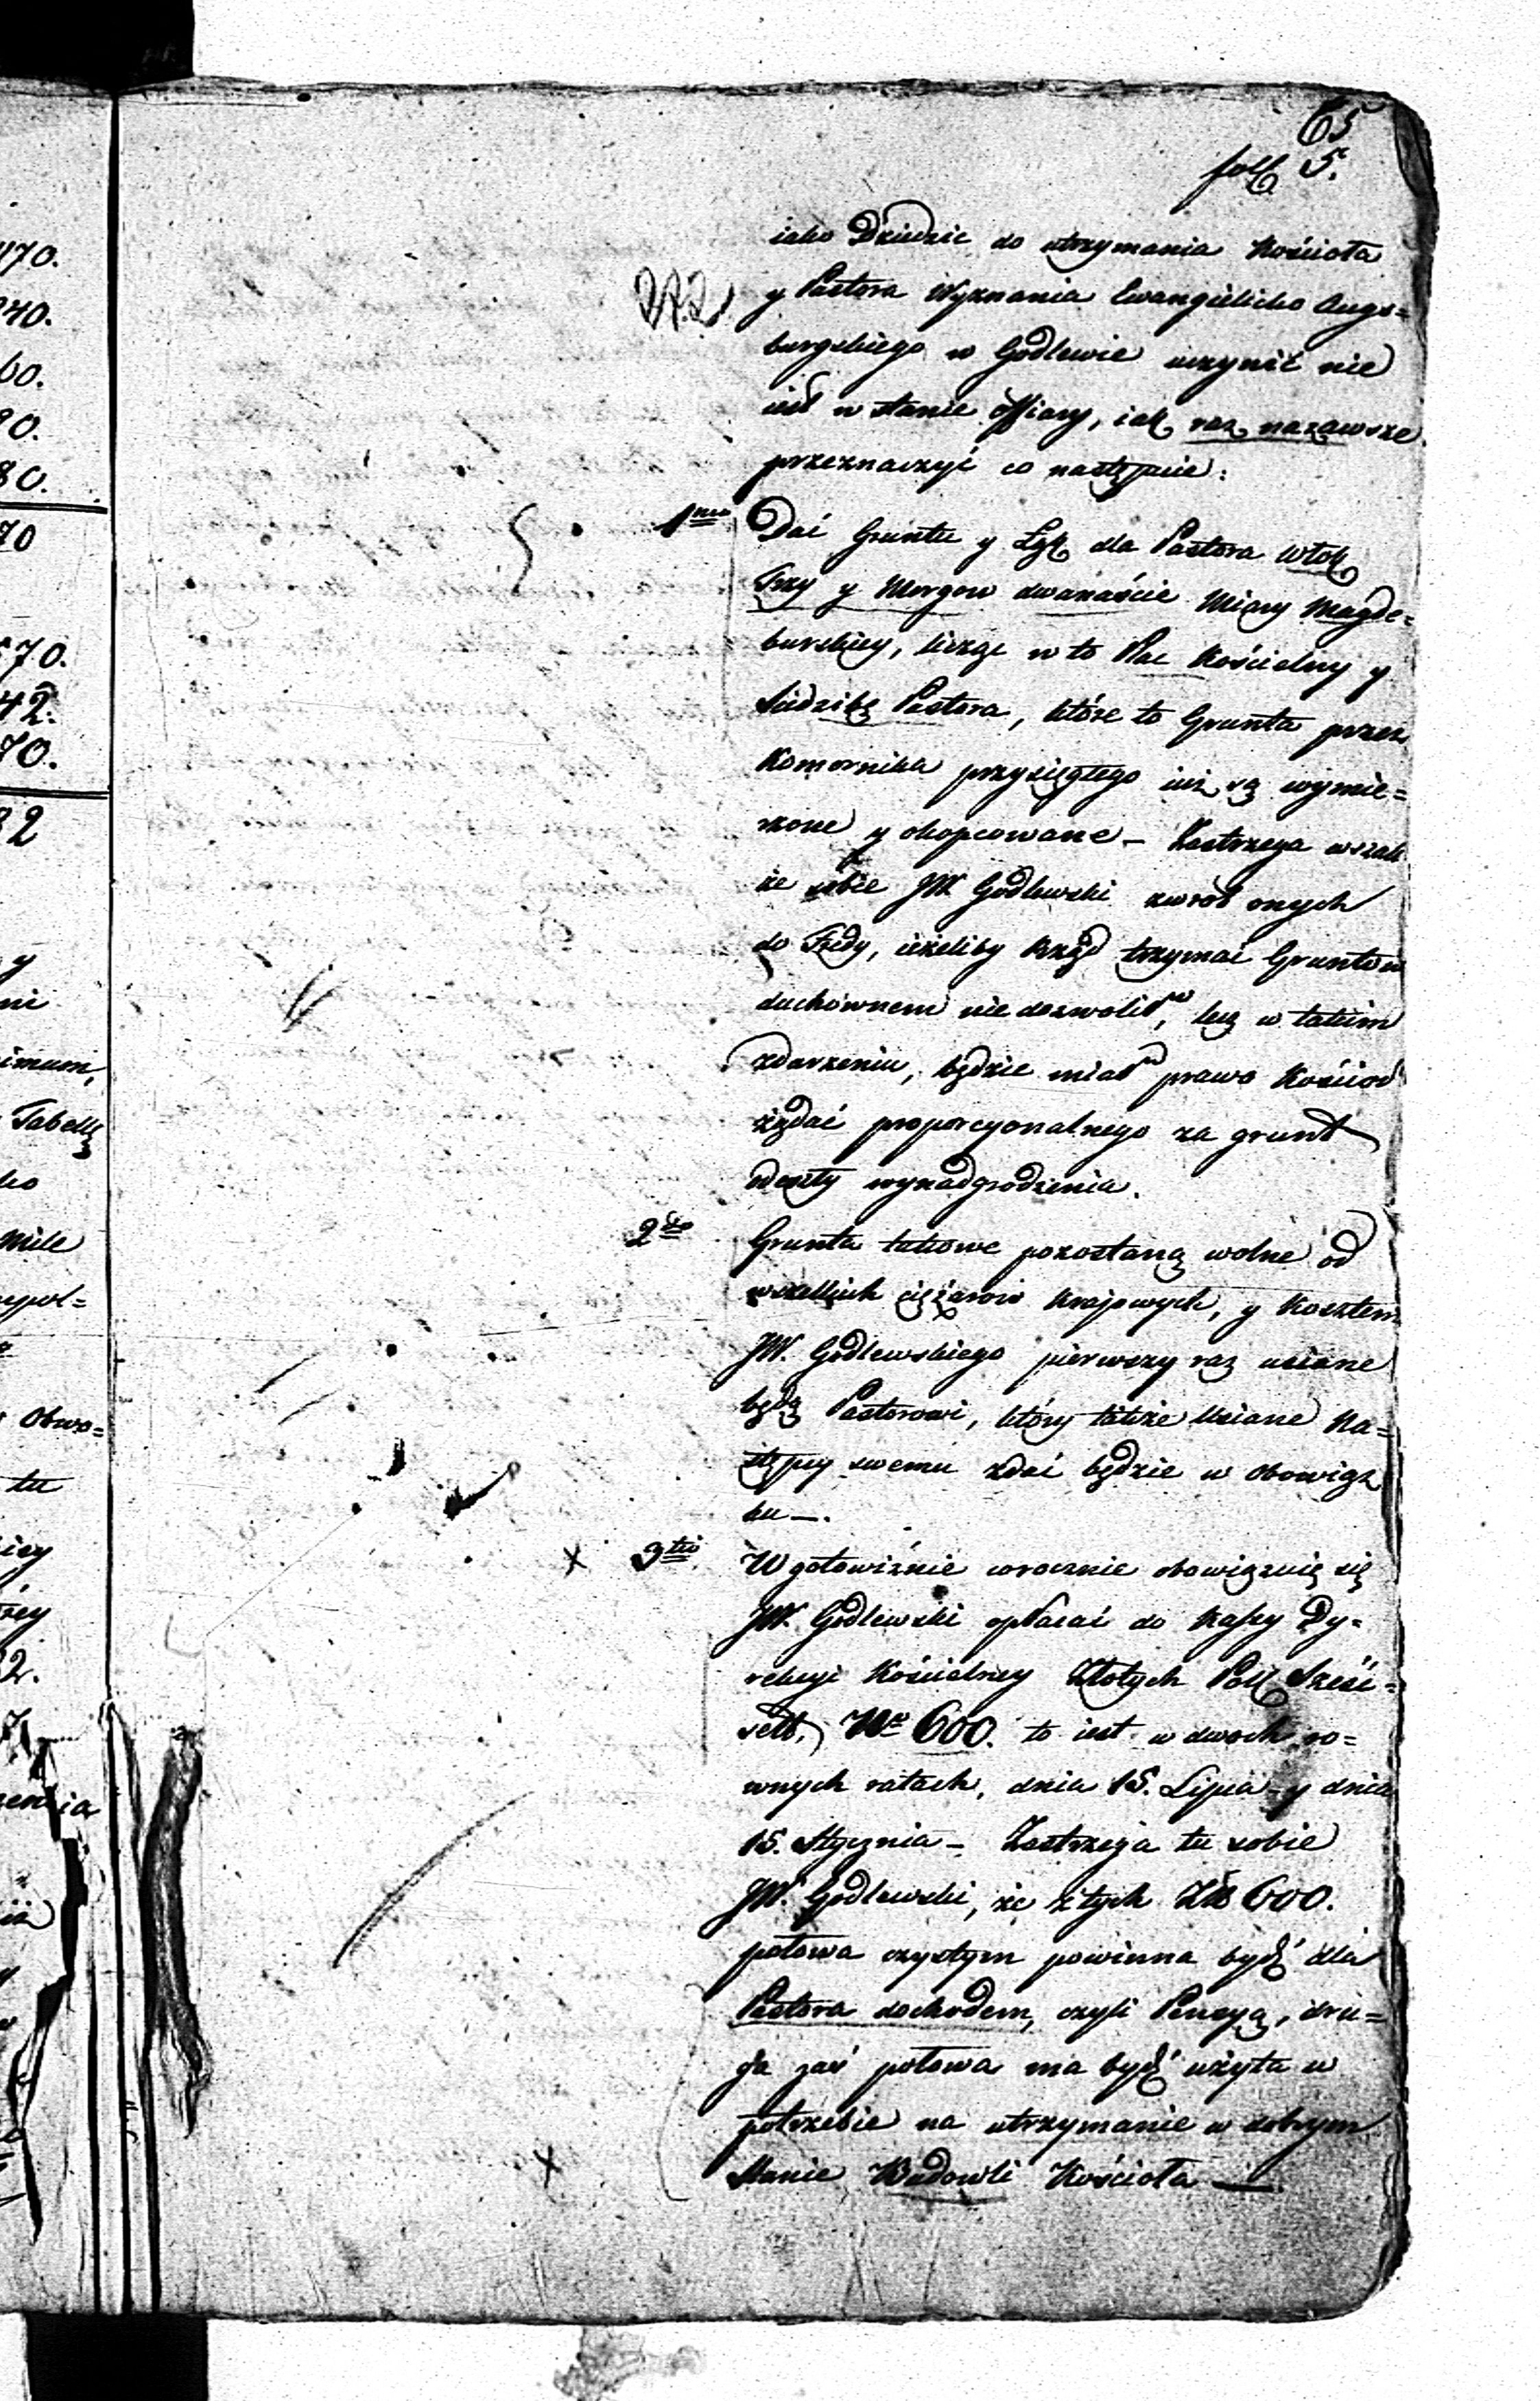 65
foll. 5.
272
iako Dziedzic do utrzymania Kościoła
y Pastora Wyznania Ewangielicko Augs=
burgskiego w Godlewie uczynić nie
iest w stanie offiary, iak raz nazawsze
przeznaczyć co następuie:
1mo Dać Gruntu y Łąk dla Pastora Włok
Trzy y Morgow dwanaście Miary Magde=
burskiey, licząc w to Plac Kościelny y
Siedzibę Pastora, które to Grunta przez
Komornika przysięgłego iuż są wymie=
rzone y okopcowane – Zastrzega wszak
że sobie JW Godlewski zwrot onych
do Tredy, ieżeliby Rząd trzymać Gruntow
duchownem nie dozwolił, lecz w takim
zdarzeniu, będzie miał prawo Kościoł
żądać proporcyonalnego za grunt
wynadgrodzenia.
2do Grunta takowe pozostaną wolne od
wszelkich ciężarow Krajowych, y Kosztem
JW. Godlewskiego pierwszy raz usiane
będą Pastorowi, który także Usiane Na=
stępcy swemu zdać będzie w obowiąz
ku –.
3tio W gotowiźnie corocznie obowiązuię się
JW. Godlewski opłacać do Kassy Dy=
rekcyi Kościelney Złotych Pol. Sześć=
set, Nro 600. to iest w dwoch ro=
wnych ratach, dnia 15. Lipca y dnia
15. Stycznia – Zastrzega tu sobie
JW. Godlewski, że z tych Zł 600.
połowa czystym powinna bydź dla
Pastora dochodem, czyli Pensyą, dru=
ga zaś połowa ma bydź użyta w
potrzebie na utrzymanie w dobrym
Stanie Budowli Kościoła –
170.
340.
60.
80.
70
570.
42.
70.
32
y
ni
imum,
Tabellę
ko
Mile
Obwo=
tu
2.